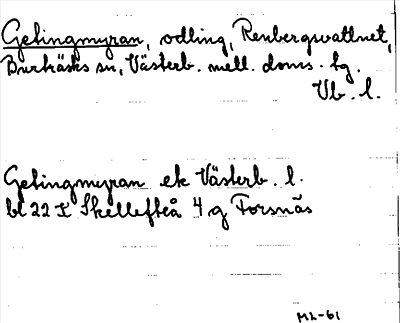 Getingmyran, odling, Renbergsvattnet,
Burträsks sn, Västerb. mell. doms. tg.
Vb. l.
Getingmyran ek Västerb. l.
bl 22 I Skellefteå 4 g Forsnäs
ML-61